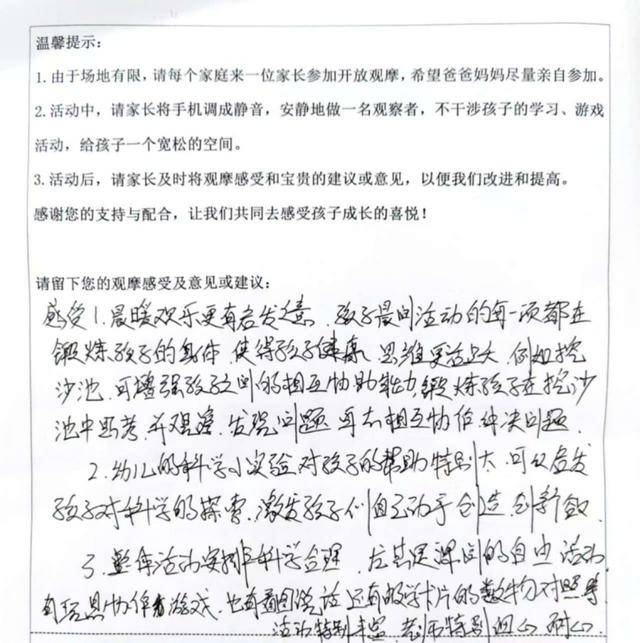 温馨提示：
1.由于场地有限，请每个家庭来一位家长参加开放观摩，希望爸爸妈妈尽量亲自参加。
2.活动中，请家长将手机调成静音，安静地做一名观察者，不干涉孩子的学习、游戏
活动，给孩子一个宽松的空间。
3.活动后，请家长及时将观摩感受和宝贵的建议或意见，以便我们改进和提高。
感谢您的支持与配合，让我们共同去感受孩子成长的喜悦！
请留下您的观摩感受及意见或建议：
感受1.晨暖欢乐更有启发意，孩子晨间活动的每一项都在
锻炼孩子的身体 使得孩子健康 思维更 例如挖
沙池 可增强孩子之间的相互协助能力，锻炼孩子在挖沙
池中思考，并观察，发现问题 再去相互协作解决问题.
2.幼儿的科学小实验对孩子的帮助特别大 可以启发
孩子对科学的探索.激发孩子们自己动手创造创新
3.整体活动安排科学合理 尤其是课间的自由活动
有玩具协作游戏.也有看图说话 还有 卡片的数物对照等
活动特别丰富 老师特别细心 耐心